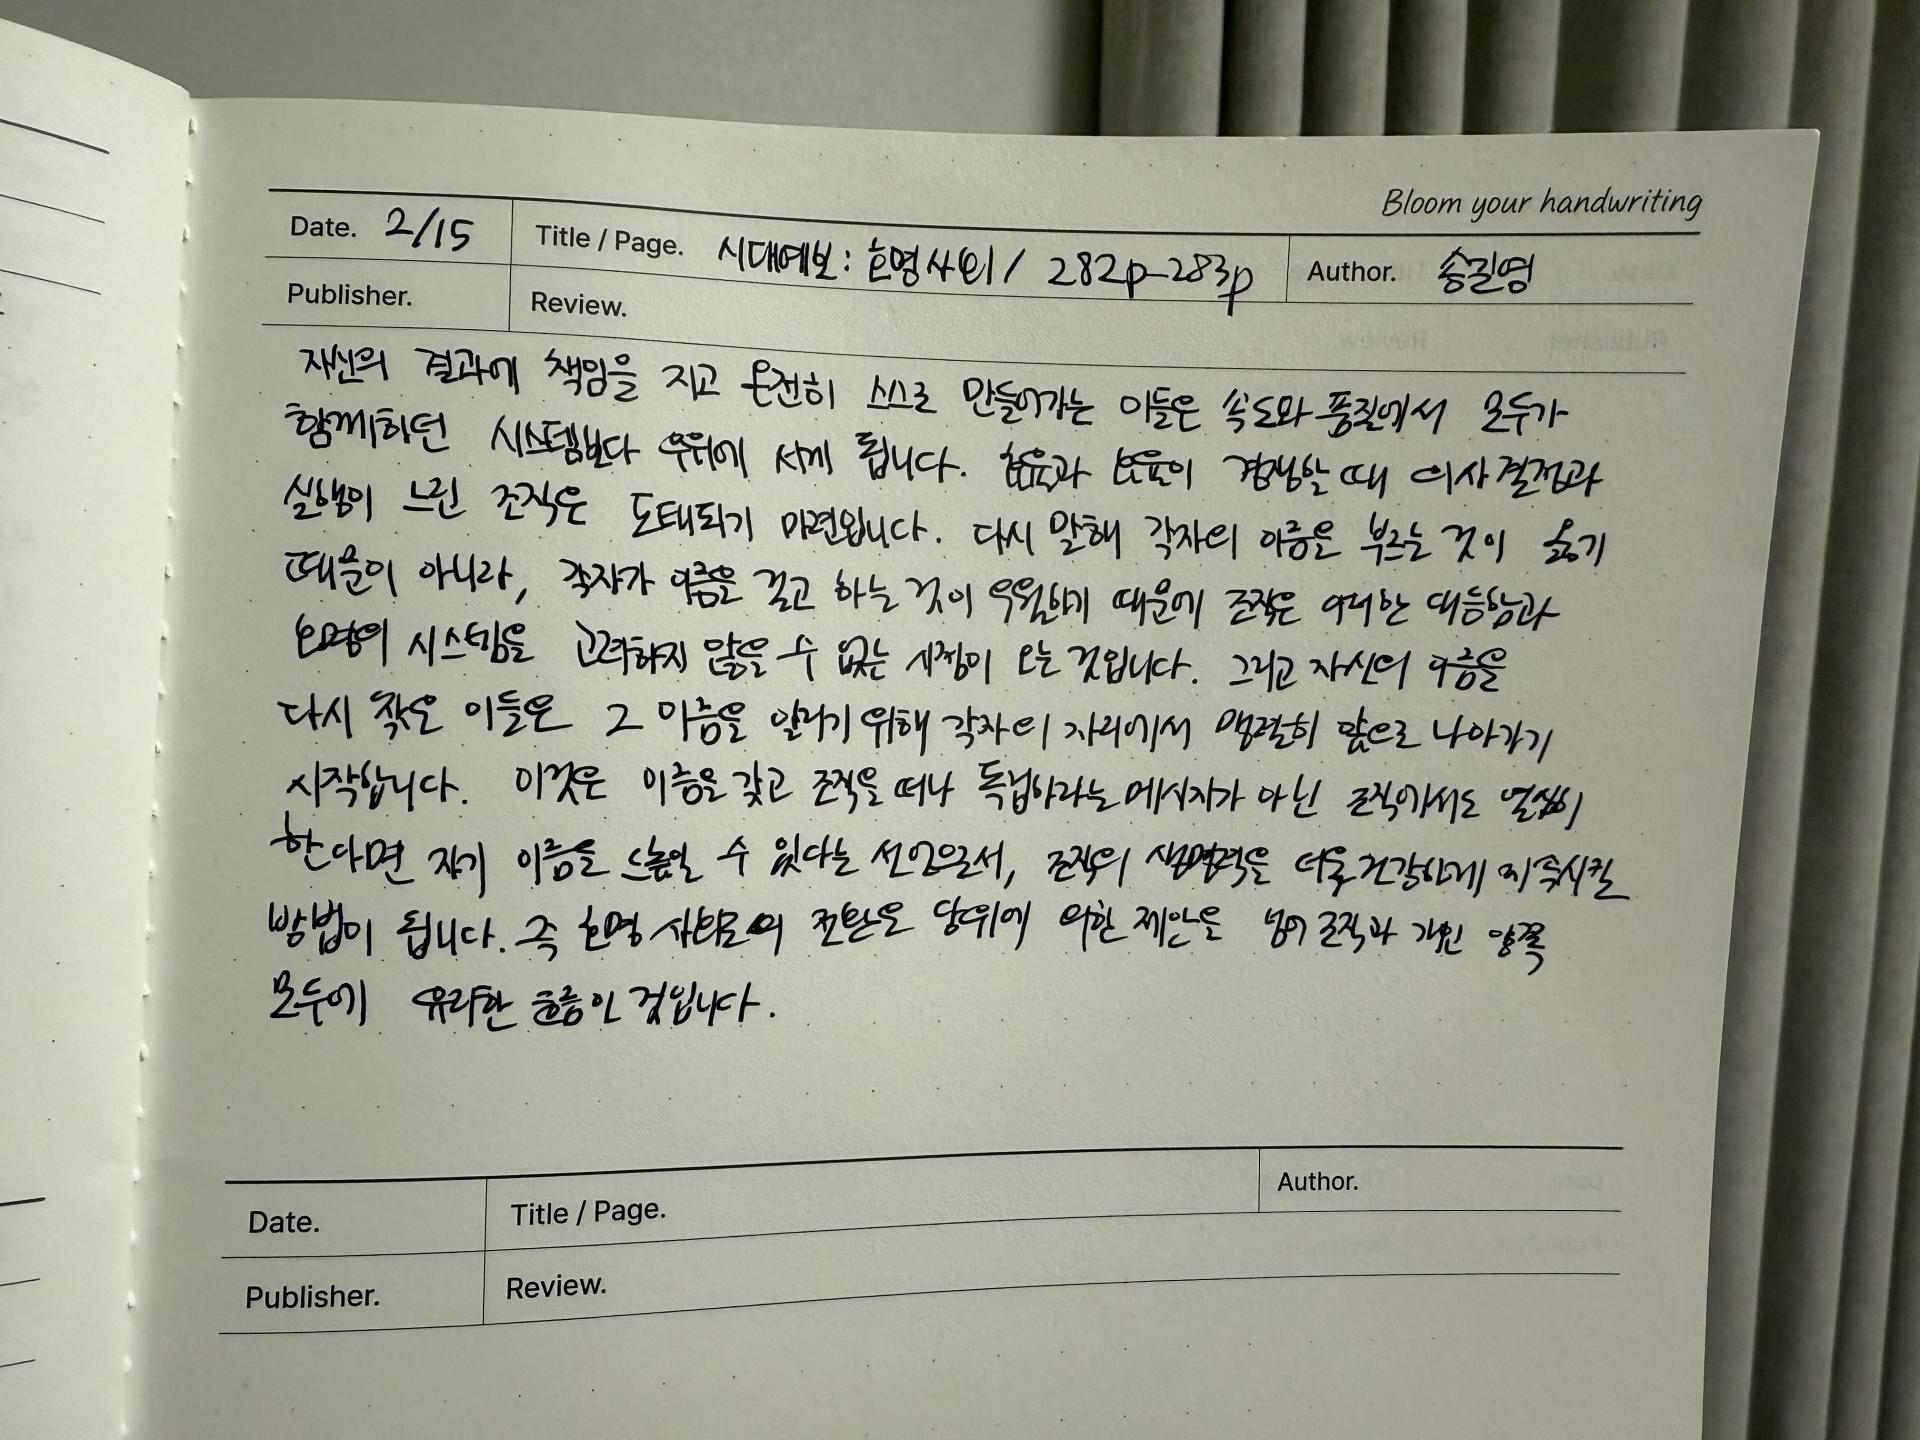 Bloom your handwriting
Date. 2/15 Title / Page. 시대예보: 호명사회 / 282p-283p Author. 송길영
Publisher. Review.
자신의 결과에 책임을 지고 온전히 스스로 만들어가는 이들은 속도와 품질에서 모두가
함께하던 시스템보다 우위에 서게 됩니다. 효율과 효율이 경쟁할 때 의사결정과
실행이 느린 조직은 도태되기 마련입니다. 다시 말해 각자의 이름을 부르는 것이 옳기
때문이 아니라, 각자가 이름을 걸고 하는 것이 우월하기 때문에 조직은 이러한 대응함과
호명의 시스템을 고려하지 않을 수 없는 시점이 오는 것입니다. 그리고 자신의 이름을
다시 찾은 이들은 그 이름을 알리기 위해 각자의 자리에서 맹렬히 앞으로 나아가기
시작합니다. 이것은 이름을 갖고 조직을 떠나 독립하라는 메시지가 아닌 조직에서도 열심히
한다면 자기 이름을 드높일 수 있다는 선언으로서, 조직의 생명력을 더욱 건강하게 지속시킬
방법이 됩니다. 즉 호명 사회로의 전환은 당위에 의한 제안을 넘어 조직과 개인 양쪽
모두에 유리한 흐름인 것입니다.
Date. Title / Page. Author.
Publisher. Review.